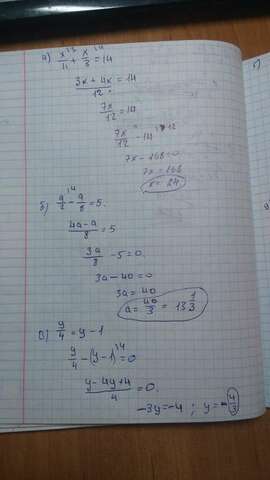 а) x/4 + x/3 = 14
(3x + 4x)/12 = 14
7x/12 = 14
7x/12 - 14
7x - 168 = 0
7x = 168
x = 24
б) a/2 - a/8 = 5.
(4a - a)/8 = 5
3a/8 - 5 = 0.
3a - 40 = 0
3a = 40
a = 40/3 = 13 1/3
в) y/4 = y - 1
y/4 - (y - 1) = 0
(y - 4y + 4)/4 = 0.
-3y = -4 ; y = 4/3